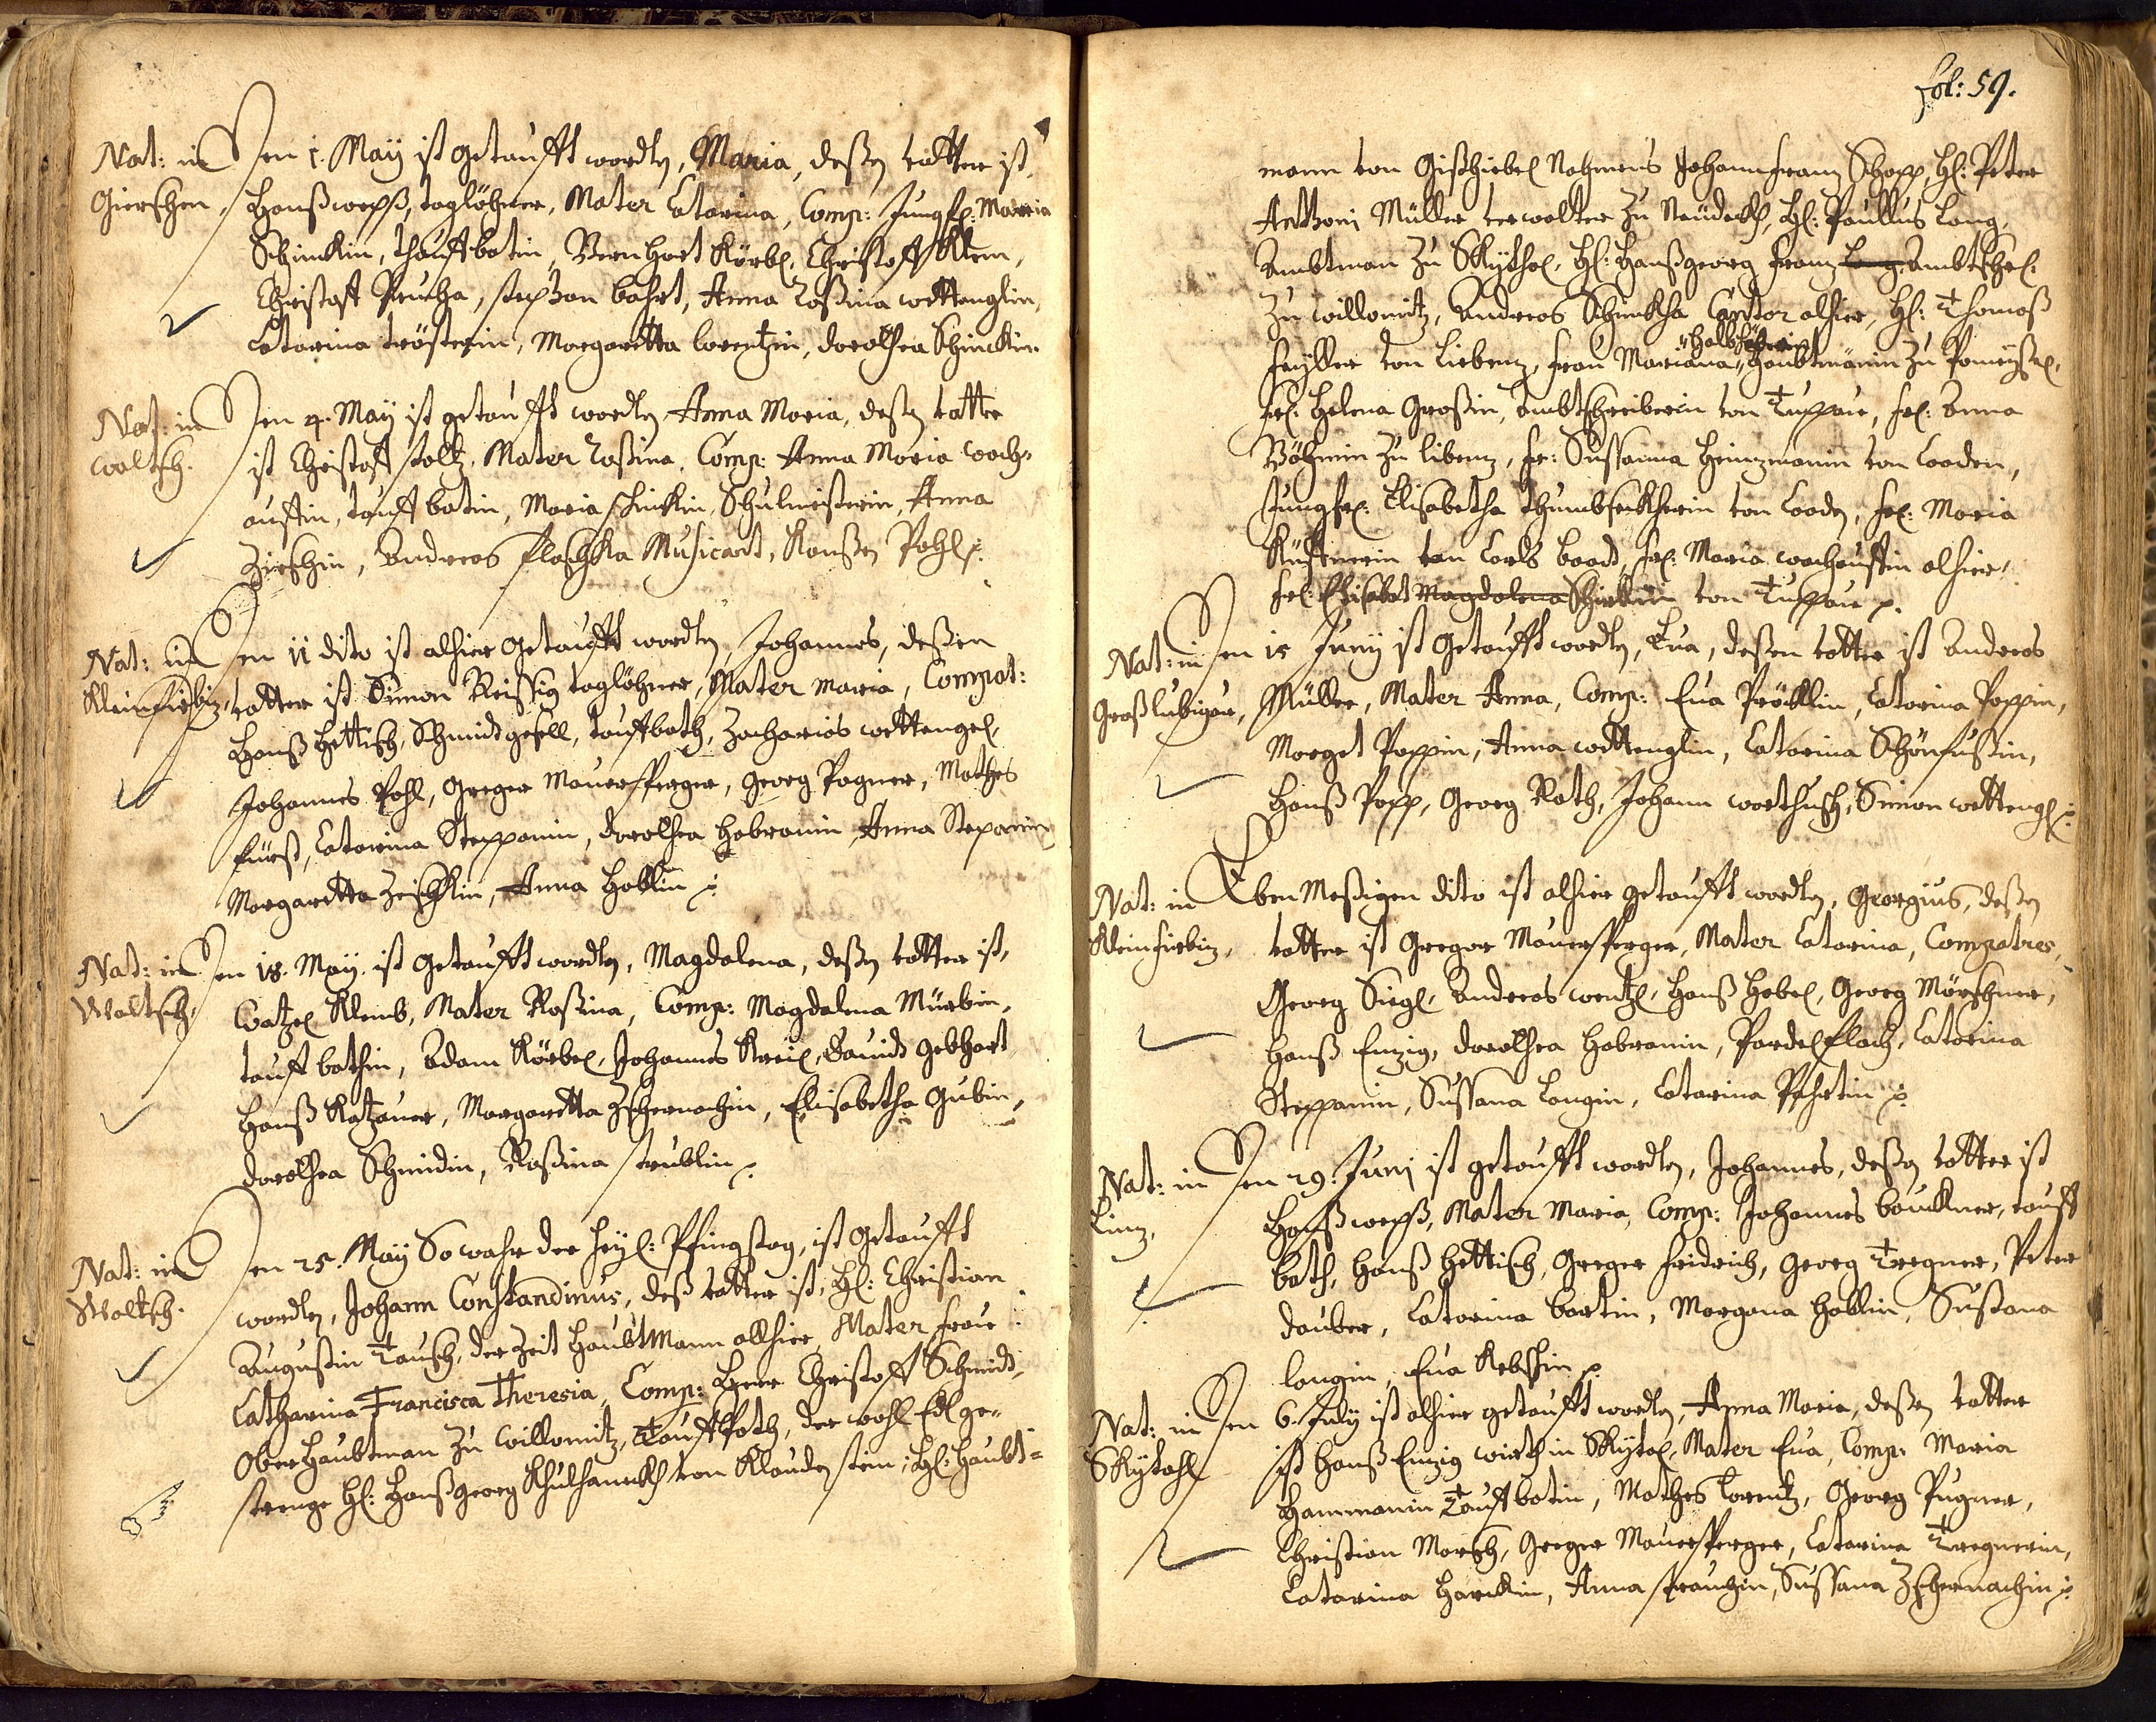 Nat: in Den 1. Maÿ ist getaufft wordtn, Maria, deßen vatter ist,
Gierschen, Hanß weyß, taglöhner, Mater Catarina, Comp: Jungfr: Maria
Schinckin, thauffbotin, Bernhart Körbl, Christoff Klem,
Christoff Prucha, stephan bohrt, Anna Rosina wettenglin,
Catarina trösterin, Margaretta lorentzin, dorothea Schinckin.
Nat: in Den 4. Maÿ ist getaufft wordtn Anna Maria, deßen vatter
waltsch. ist Christoff stoltz, Mater Rosina, Comp: Anna Maria woch-
austin, tauffbotin, Maria schinkin, Schulmeisterin, Anna
Zirschin, Andreas Flaschka Musicant, Pohl
Nat: in Den 11 dito ist alhier getaufft wordtn Johannes, deßen
Kleinfirbiz, vatter ist Simon Reissig taglöhner, Mater Maria, Compat:
Hanß Hettisch, Schmidtgesell, tauffboth, Zacharias wettengel,
Johannes Pohl, Greger Mauersperger, Georg Pogner, Mathes
fürst, Catarina Steppanin, dorothea Habranin, Anna Stepanin
Margaretta Zeischklin, Anna Hoblin
Nat: in Den 18. Maÿ. ist getaufft wordtn, Magdalena, deßen vatter ist,
Waltsch, Watzel Klemb, Mater Rosina, Comp: Magdalena Mürbin,
tauffbothin, Adam Körbel, Johannes Kreil, Davidt Gebhart
Hanß Katzauer, Margaretta Zschernachin, Elisabetha Gubin,
dorothea Schmidin, Rosina strublin
Nat: in Den 25. Maÿ So wahr der heyl: Pfingstag, ist getaufft
Waltsch. wordtn, Johann Constandinus, deß vatter ist, Hl: Christian
Augustin Tausch, der Zeit Haubtmann allhier, Mater, Frau
Catharina Francisca Theresia, Comp: Herr Christoff Schmidt,
Ober Haubtman zu willomitz, Tauffpoth, der wohl Edl ge-
strenge Hl: Hanßgeorg Kulhaneckh von Klaudenstein, Hl: Haubt-
fol: 59.
mann von Gißhiebel Nahmens Johann Franz Schopp, Hl: Peter
Anthoni Müller verwalter zu Neüdeckh, Hl: Paullus Lang,
Ambtman zu Skÿthal, Hl: Hanßgeorg Franz Ambtschr:
zu willomitz, Andreas Schinckha Cantor alhier, Hl: Thomaß
von Liebenz, Frau Mariana Haubtmänin zu Pomeyßl,
fr: Helena Großin, Ambtschreiberin von Tuppau, fr: Anna
Böhmin zu libenz, fr: Susanna Heinzmanin von Caaden,
Jungfr: Elisabetha von Caaden, fr: Maria
von Carls baadt, fr: Maria wochaustin alhier,
fr: Elisabet Magdalena von Tuppau
Nat: in Den 15 Junÿ ist getaufft wordtn, Eua, deßen vatter ist Andreas
Großlubigau, Müller, Mater Anna, Comp: Eua Pröcklin, Catarina Poppin,
Marget Poppin, Anna wettenglin, Catarina Schönfußin,
Hanß Popp, Georg Roth, Johann Simon wettengl
Nat: in Eben Meßigen dito ist alhier getaufft wordtn, Georgius, deßen
Kleinfirbiz, vatter ist Gregor Mauersperger, Mater Catarina, Compatres,
Georg Siegl, Andreas wentzl, Hanß Hebel, Georg Mörschner,
Hanß Enzig, dorothea Habranin, Catarina
Steppanin, Sussana Langin, Catarina
Nat: in Den 29. Junj ist getaufft wordtn, Johannes, deßen vatter ist
Linz, Hanß weyß, Mater Maria, Comp: Johannes bauckner, tauff
both, Hanß Hettisch, Greger Fridrich, Georg Tregner, Peter
dauber, Catarina bartin, Margana Hoblin, Susana
langin, Eua
Nat: in Den 6. Julÿ ist alhier getaufft wordtn, Anna Maria, deßen vatter
Skÿtahl ist Hanß Enzig wirth in Skÿtal, Mater Eua, Comp: Maria
Hammanin Tauffbotin, Mathes Lorentz, Georg Pugner,
Christian Morsch, Greger Mauersperger, Catarina Tregnerin,
Catarina Harckin, Anna strauchin, Sussana Zschernachin